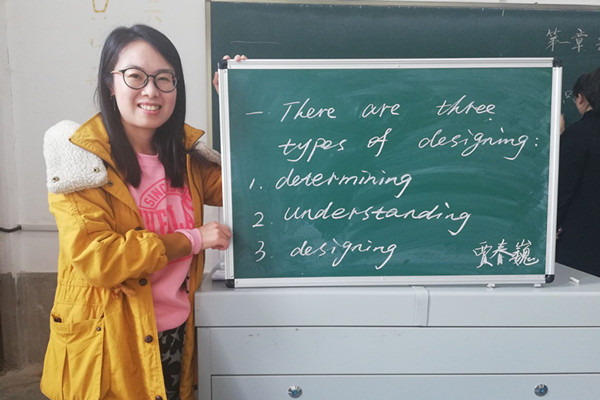 第一章
一 There are three
types of designing:
1. determining
2. understanding
3. designing 贾春巍
SINCE